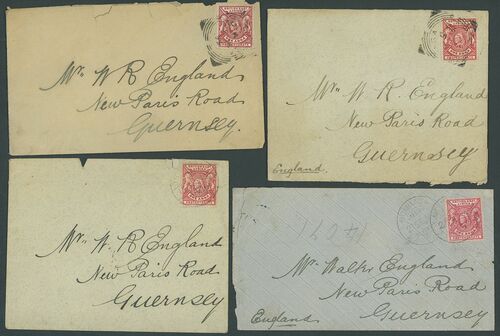 Mrs W R England
New Paris Road
Guernsey.
Mrs W. R. England
New Paris Road
Guernsey
England
ONE ANNA
Mrs W. R England
New Paris Road
Guernsey
Mrs Walter England
New Paris Road
Guernsey
England